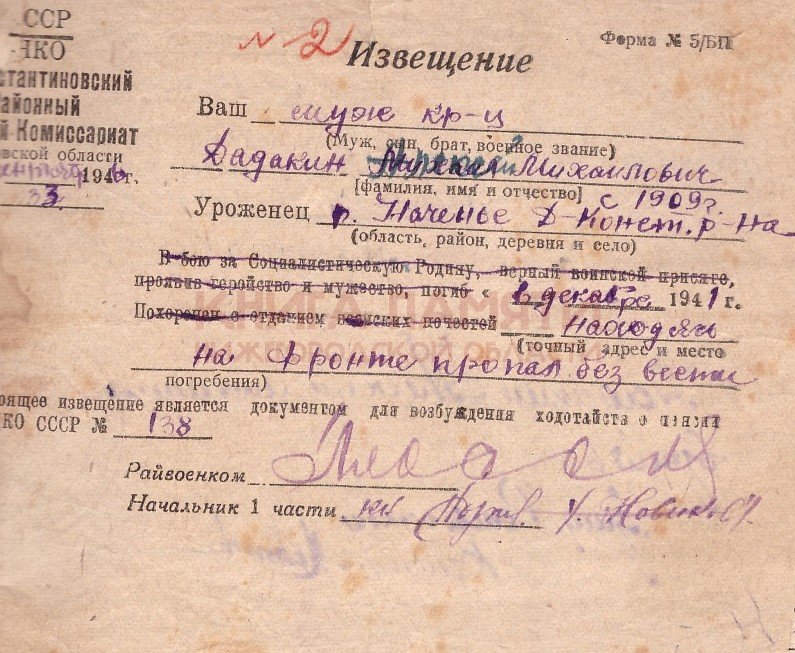 ССР
НКО
стантиновский
айонный
й Комиссариат
вской области
1946г.
33
№ 2
Форма № 5/БП
Извещение
Ваш муж кр-ц
(Муж, сын, брат, военное звание)
Дадакин Михаил Михайлович
[фамилия, имя и отчество] с 1909г.
Уроженец р. Наченье Д-Конст. р-на
(область, район, деревня и село)
В бою за Социалистическую Родину, верный воинской присяге,
проявив геройство и мужество, погиб « в декабре 1941 г.
Похоронен с отданием воинских почестей находясь
(точный адрес и место
на фронте пропал без вести
погребения)
оящее извещение является документом для возбуждения ходотайств о пенсии
КО СССР № 138
Райвоенком
Начальник 1 части